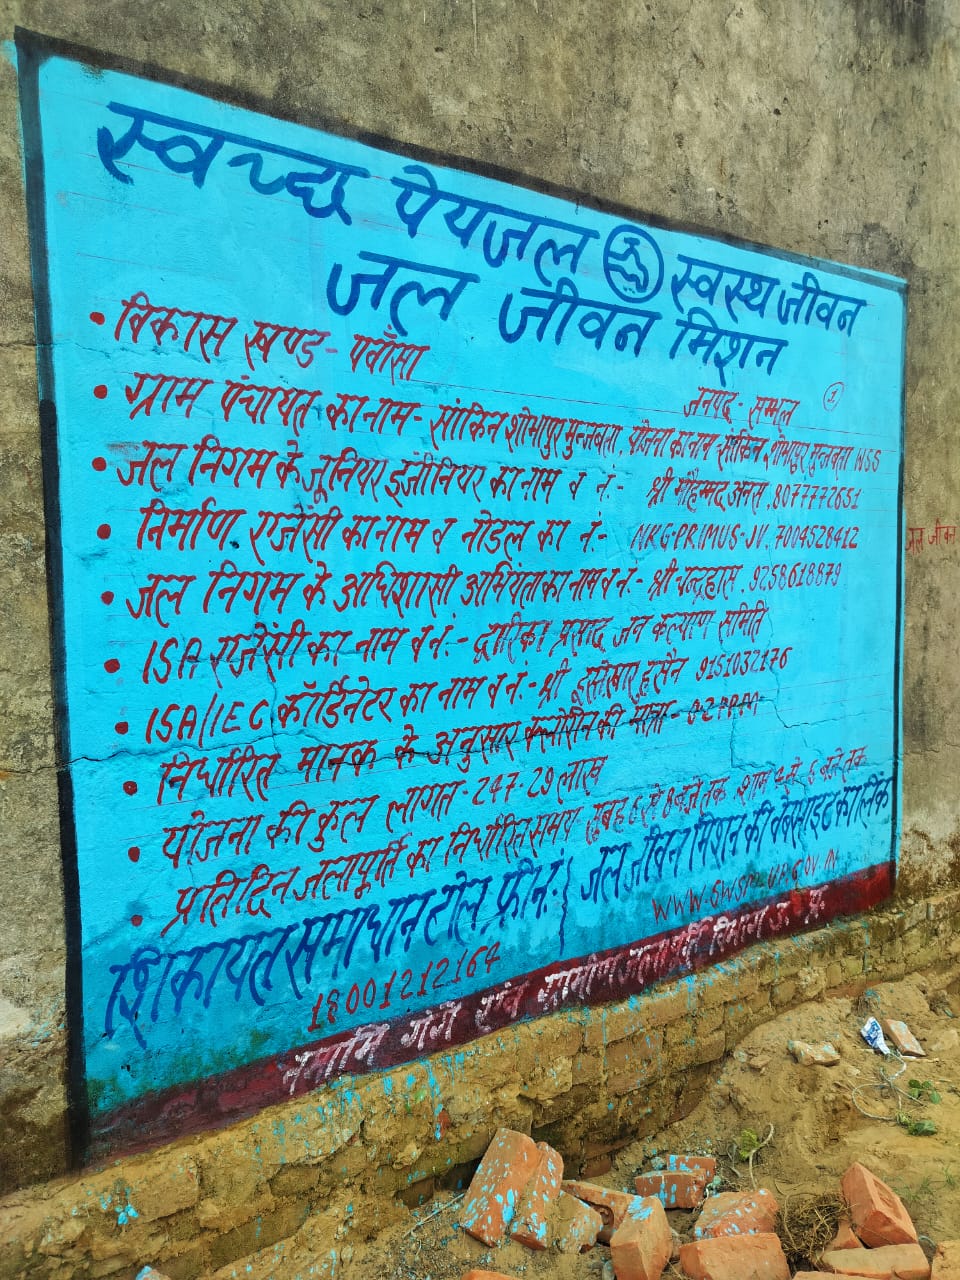 स्वच्छ पेयजल स्वस्थ जीवन
जल जीवन मिशन
• विकास खण्ड - पवाँसा
जनपद - सम्भल
1
• ग्राम पंचायत का नाम - सांकिन शोभापुर मुन्जबता, योजना का नाम सांकिन शोभापुर मुन्जबता WSS
• जल निगम के जूनियर इंजीनियर का नाम व नं.- श्री मौहम्मद अनस, 8077772651
• निर्माण एजेंसी का नाम व नोडल का नं.- NKG-PRIMUS-JV. 7004528412
• जल निगम के अधिशासी अभियंता का नाम व नं.- श्री चन्द्रहास. 9258618879
• ISA एजेंसी का नाम व नं.- द्वारिका प्रसाद जन कल्याण समिति
• ISA/IEC कॉर्डिनेटर का नाम व नं.- श्री हुसैन 9151032176
• निर्धारित मानक के अनुसार क्लोरिन की मात्रा - 0.2 P.P.M
• योजना की कुल लागत - 247.29 लाख
• प्रतिदिन जलापूर्ति का निर्धारित समय - सुबह 6 से 8 बजे तक शाम 4 से 6 बजे तक
शिकायत समाधान टोल फ्री नं.:
18001212164
जल जीवन मिशन की वेबसाइट का लिंक
WWW.SWSM.UP.GOV.IN
नमामि गंगे एवं ग्रामीण जलापूर्ति विभाग उ. प्र.
जल जीवन